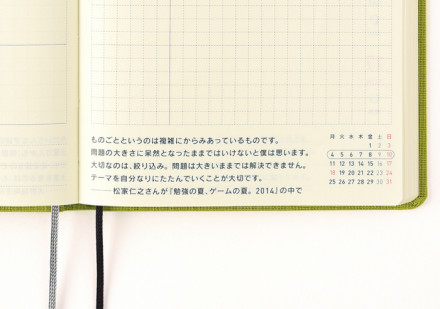 ものごとというのは複雑にからみあっているものです。
問題の大きさに呆然となったままではいけないと僕は思います。
大切なのは、絞り込み。問題は大きいままでは解決できません。
テーマを自分なりにたたんでいくことが大切です。
——松家仁之さんが『勉強の夏、ゲームの夏。2014』の中で
月 火 水 木 金 土 日
1 2 3
4 5 6 7 8 9 10
11 12 13 14 15 16 17
18 19 20 21 22 23 24
25 26 27 28 29 30 31